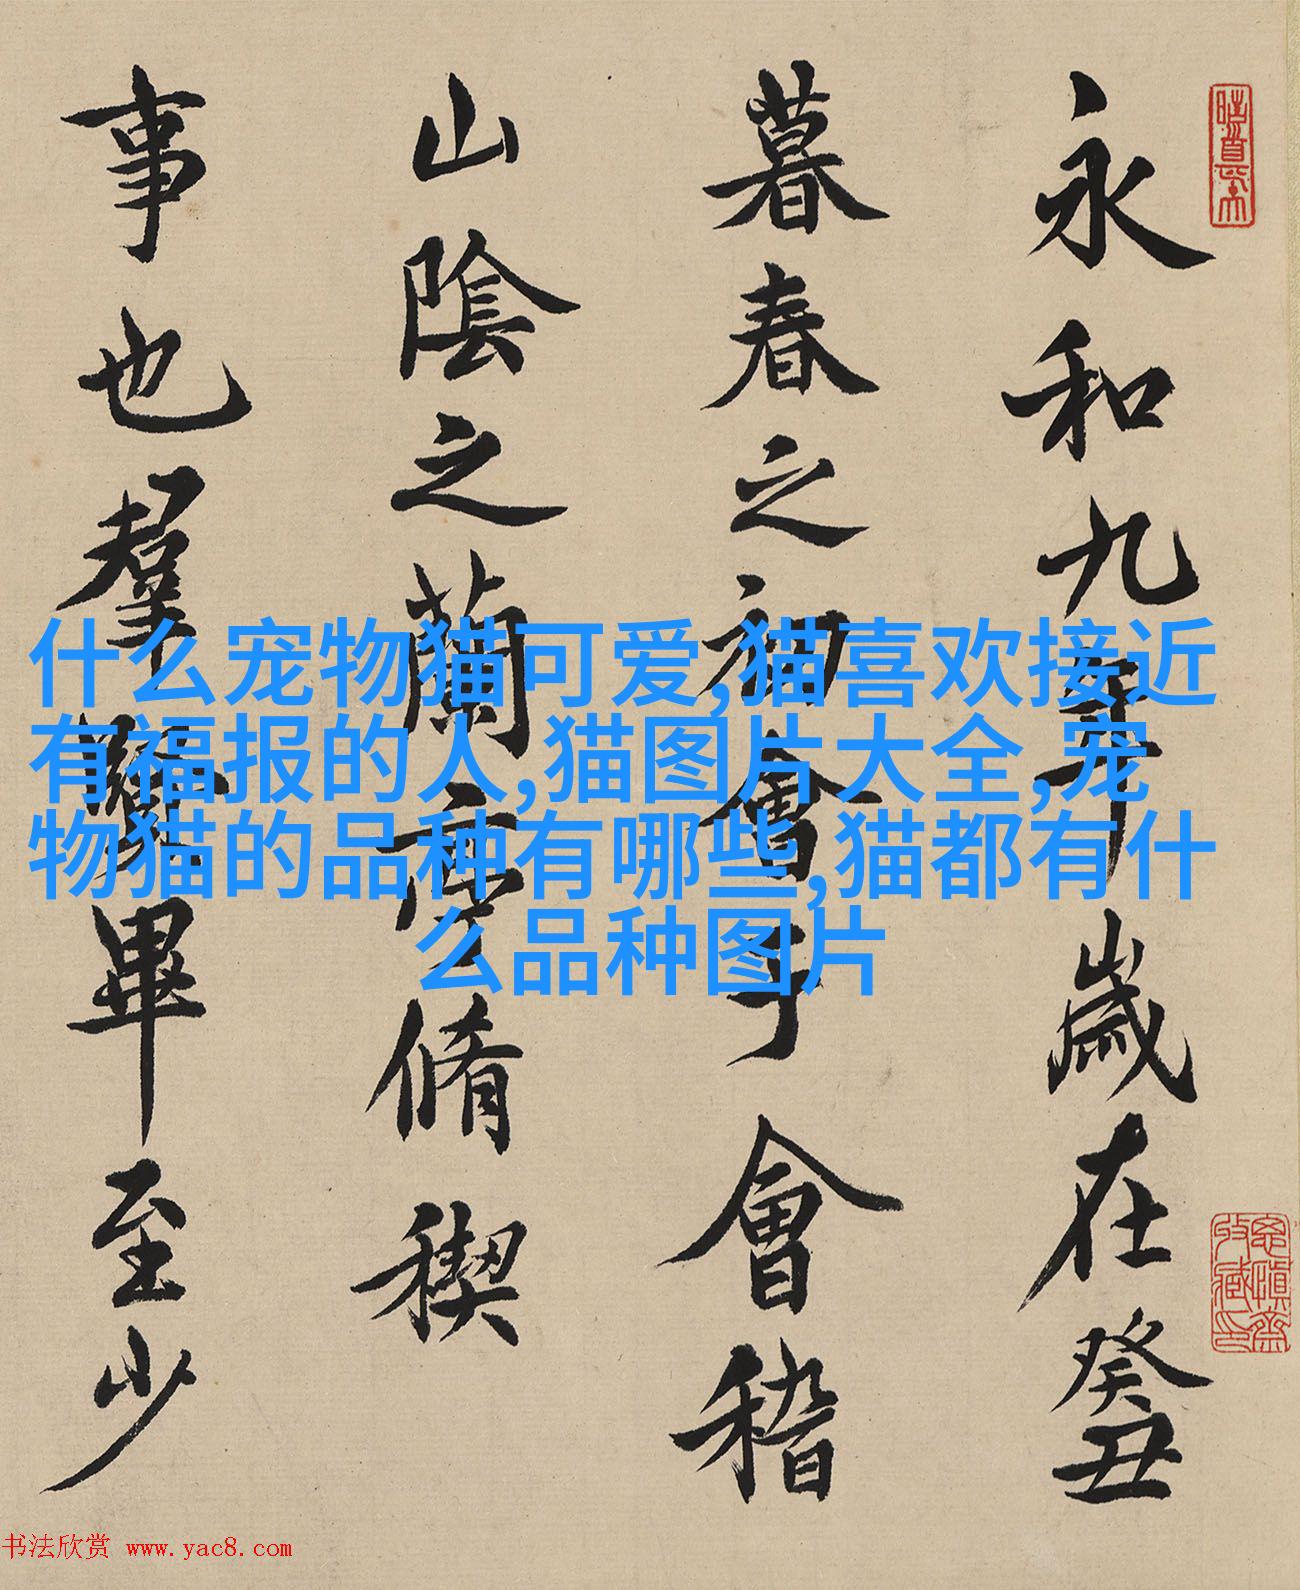 永和九年歲在癸丑
暮春之初會于會稽
山陰之蘭亭脩稧
事也羣賢畢至少
什么宠物猫可爱,猫喜欢接近
有福报的人,猫图片大全,宠
物猫的品种有哪些,猫都有什
么品种图片
书法欣赏 www.yac8.com